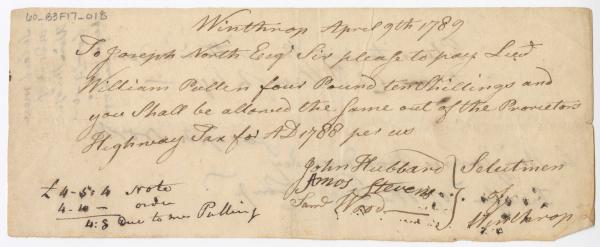 60_B3F17_018
Winthrop April 9th 1789
To Joseph North Esqr Sir please to pay Lieut
William Pullen four Pound ten Shillings and
you Shall be allowed the Same out of the Proprietors
Highway Tax for AD 1788 per us
John Hubbard
Amos Stevens
Saml Wood
Selectmen
of
Winthrop
£ 4-5:4 Note
4-10- order
4:8 Due to mr Pulling